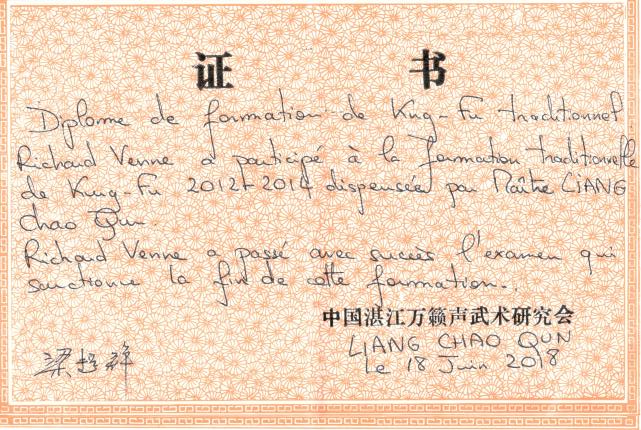 证 书
Diplome de formation de Kung-Fu traditionnel
Richard Venne a participé à la formation traditionnelle
de Kung-Fu 2012 2014 dispensée par Maître LIANG
Chao Qun.
Richard Venne a passé avec succès l'examen qui
sanctionne la fin de cette formation.
中国湛江万籁声武术研究会
LIANG CHAO QUN
Le 18 Juin 2018
梁超群